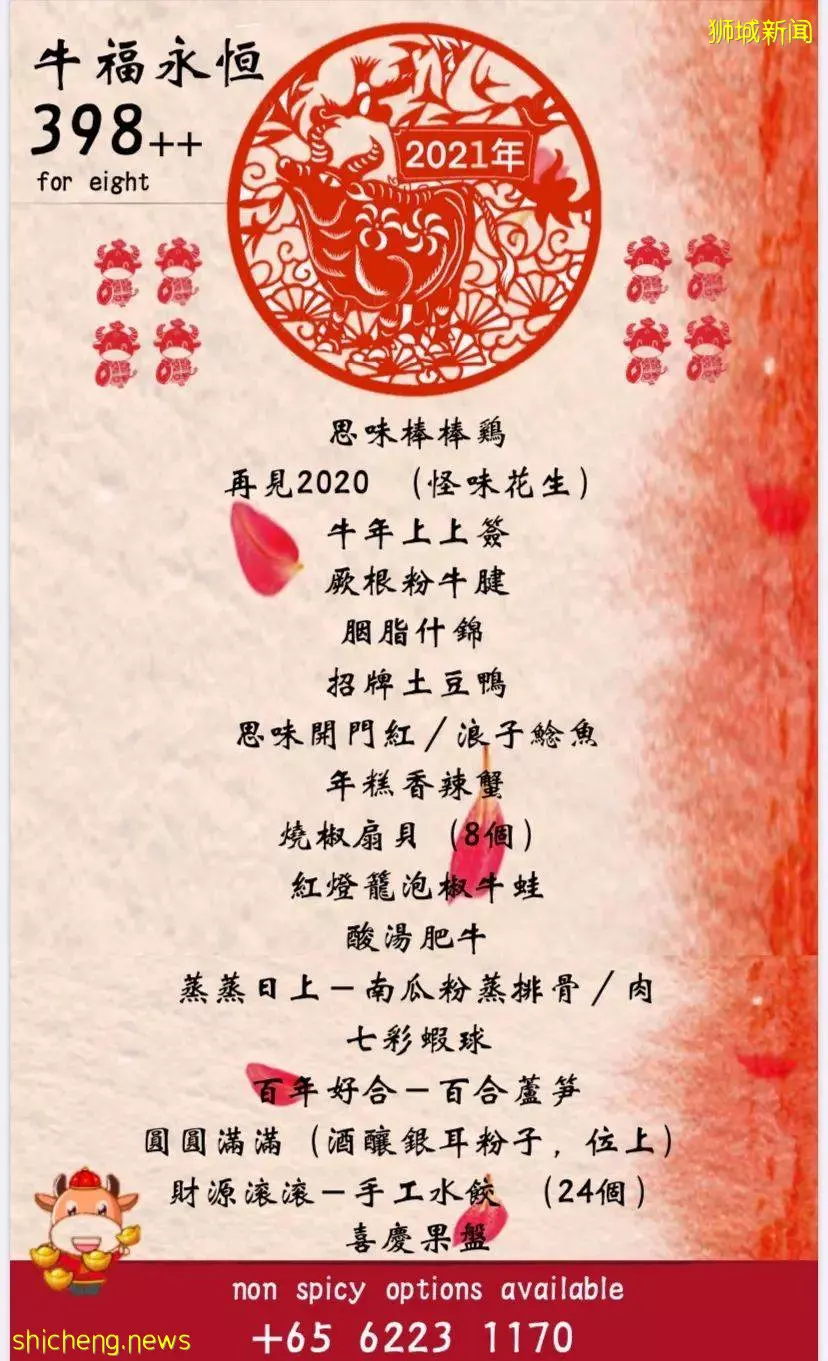 狮城新闻
牛福永恒
398++
for eight
2021年
思味棒棒鷄
再見2020 （怪味花生）
牛年上上簽
厥根粉牛腱
胭脂什錦
招牌土豆鴨
思味開門紅/浪子鯰魚
年糕香辣蟹
燒椒扇貝（8個）
紅燈籠泡椒牛蛙
酸湯肥牛
蒸蒸日上－南瓜粉蒸排骨/肉
七彩蝦球
百年好合－百合蘆笋
圓圓滿滿（酒釀銀耳粉子，位上）
財源滾滾－手工水餃 （24個）
喜慶果盤
non spicy options available
shicheng.news
+65 6223 1170